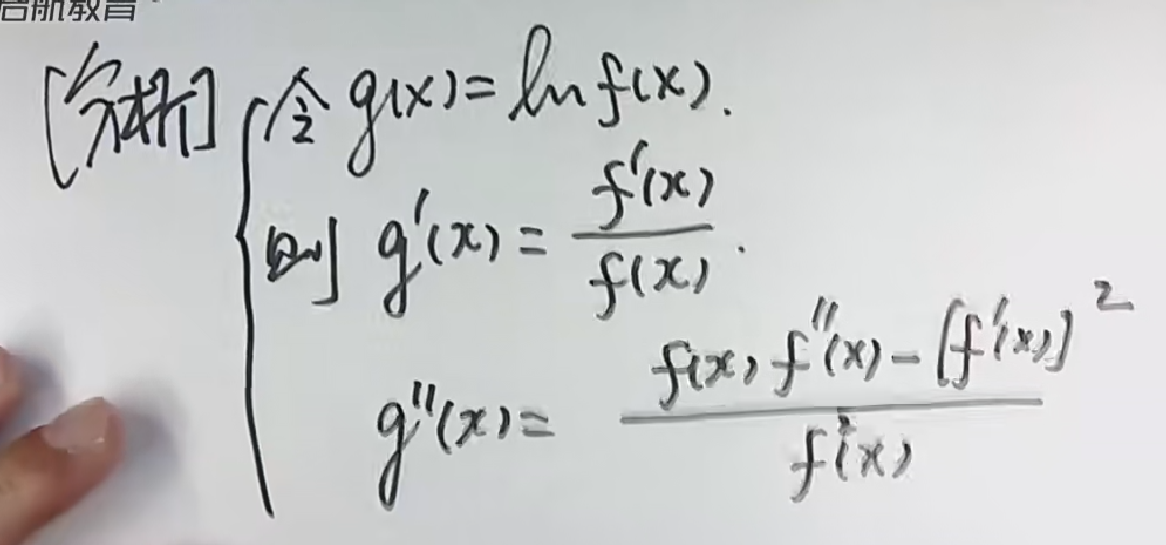 启航教育
[分析] 令 g(x) = ln f(x).
则 g'(x) = f'(x) / f(x).
g''(x) = f(x) f''(x) - [f'(x)]² / f²(x)